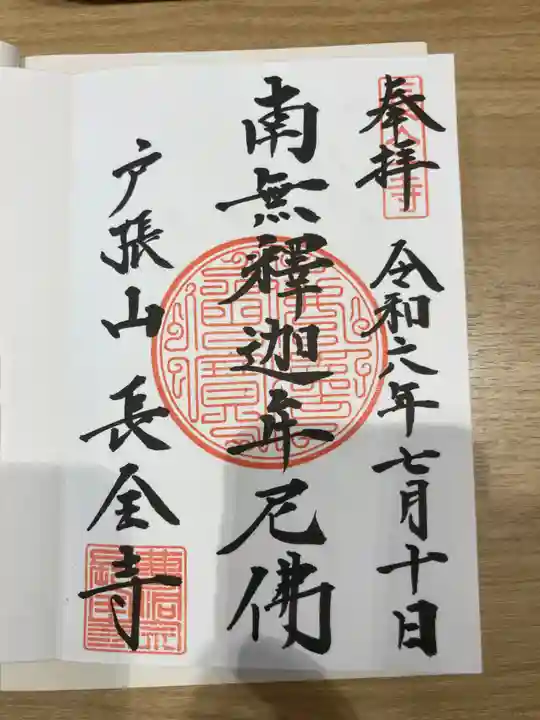 奉拝 令和六年七月十日
南無釋迦牟尼佛
戸張山 長全寺